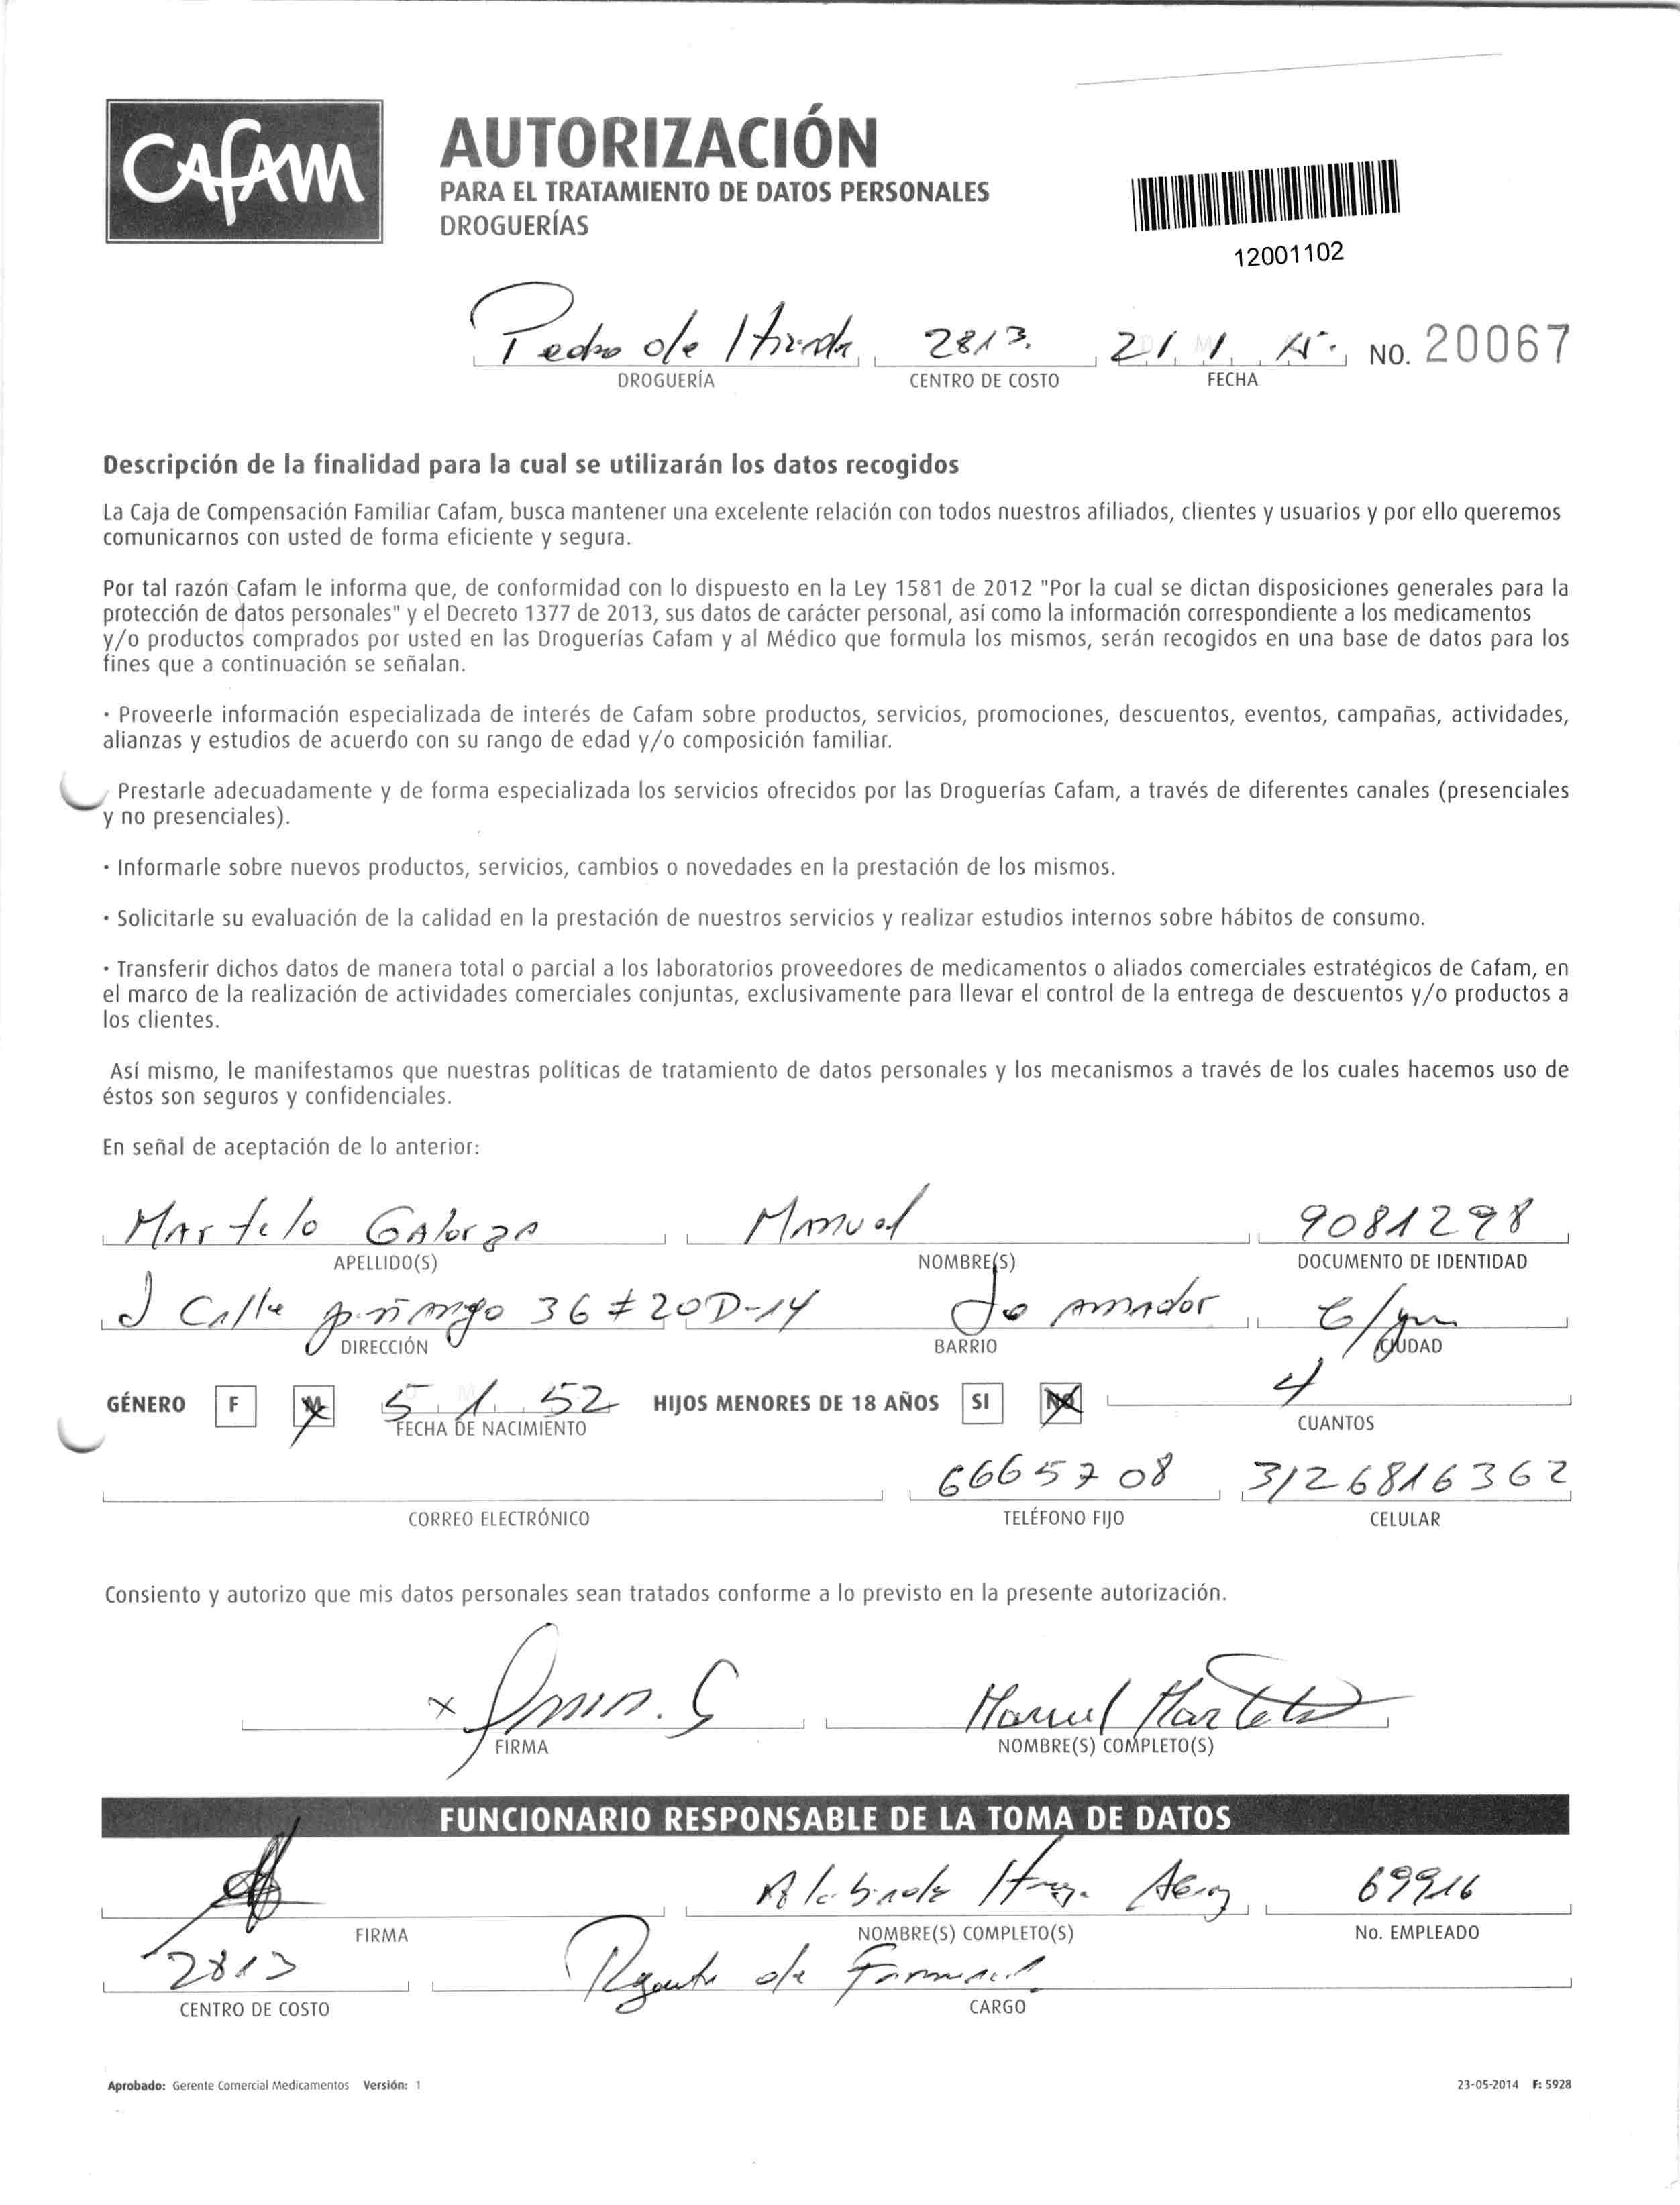 CAFAM
AUTORIZACIÓN
PARA EL TRATAMIENTO DE DATOS PERSONALES
DROGUERÍAS
12001102
Pedro de 2813. 21 1 15. NO. 20067
DROGUERÍA CENTRO DE COSTO FECHA
Descripción de la finalidad para la cual se utilizarán los datos recogidos
La Caja de Compensación Familiar Cafam, busca mantener una excelente relación con todos nuestros afiliados, clientes y usuarios y por ello queremos
comunicarnos con usted de forma eficiente y segura.
Por tal razón Cafam le informa que, de conformidad con lo dispuesto en la Ley 1581 de 2012 "Por la cual se dictan disposiciones generales para la
protección de datos personales" y el Decreto 1377 de 2013, sus datos de carácter personal, así como la información correspondiente a los medicamentos
y/o productos comprados por usted en las Droguerías Cafam y al Médico que formula los mismos, serán recogidos en una base de datos para los
fines que a continuación se señalan.
· Proveerle información especializada de interés de Cafam sobre productos, servicios, promociones, descuentos, eventos, campañas, actividades,
alianzas y estudios de acuerdo con su rango de edad y/o composición familiar.
Prestarle adecuadamente y de forma especializada los servicios ofrecidos por las Droguerías Cafam, a través de diferentes canales (presenciales
y no presenciales).
· Informarle sobre nuevos productos, servicios, cambios o novedades en la prestación de los mismos.
· Solicitarle su evaluación de la calidad en la prestación de nuestros servicios y realizar estudios internos sobre hábitos de consumo.
· Transferir dichos datos de manera total o parcial a los laboratorios proveedores de medicamentos o aliados comerciales estratégicos de Cafam, en
el marco de la realización de actividades comerciales conjuntas, exclusivamente para llevar el control de la entrega de descuentos y/o productos a
los clientes.
Así mismo, le manifestamos que nuestras políticas de tratamiento de datos personales y los mecanismos a través de los cuales hacemos uso de
éstos son seguros y confidenciales.
En señal de aceptación de lo anterior:
Martelo Galorza Manuel 9081298
APELLIDO(S) NOMBRE(S) DOCUMENTO DE IDENTIDAD
Calle 36 # 20D-14 amador C/gna
DIRECCIÓN BARRIO CIUDAD
GÉNERO F M 5 1 52 HIJOS MENORES DE 18 AÑOS SI NO 4
FECHA DE NACIMIENTO CUANTOS
6665708 3126816362
CORREO ELECTRÓNICO TELÉFONO FIJO CELULAR
Consiento y autorizo que mis datos personales sean tratados conforme a lo previsto en la presente autorización.
x Manuel Martelo
FIRMA NOMBRE(S) COMPLETO(S)
FUNCIONARIO RESPONSABLE DE LA TOMA DE DATOS
69916
FIRMA NOMBRE(S) COMPLETO(S) No. EMPLEADO
2813 Regente de Farmacia
CENTRO DE COSTO CARGO
Aprobado: Gerente Comercial Medicamentos Versión: 1 23-05-2014 F: 5928